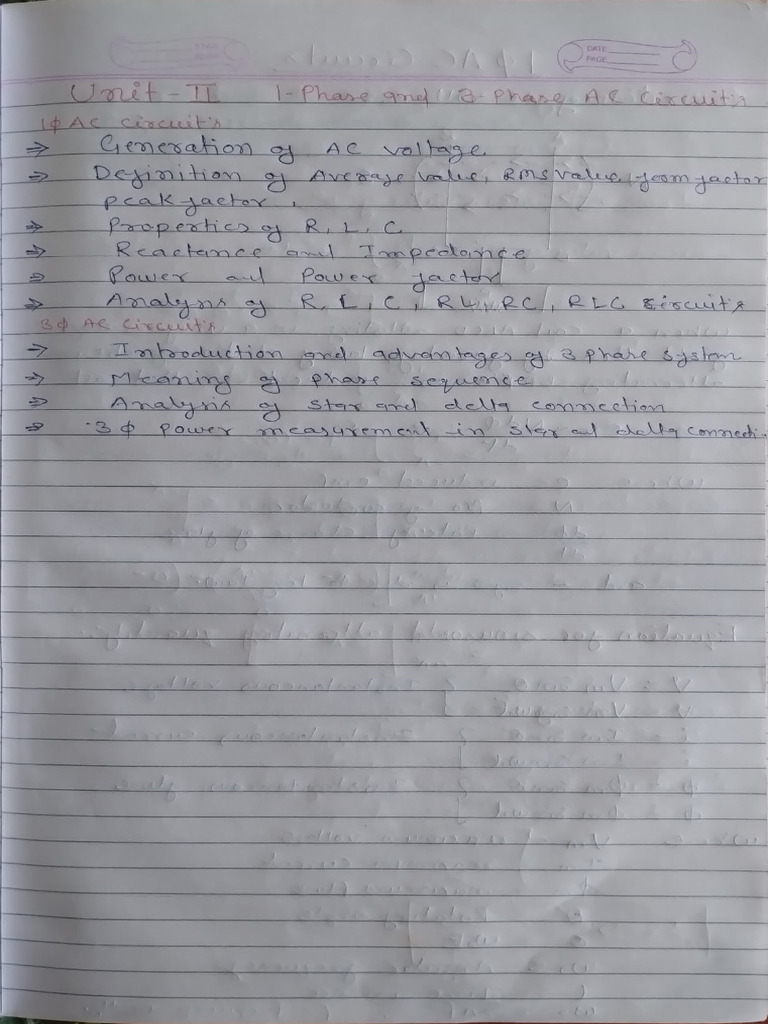 DATE
PAGE
Unit - II 1-Phase and 3-Phase AC Circuit's
1ϕ AC Circuit's
⇒ Generation of AC voltage
⇒ Definition of Average value, RMS value, form factor
peak factor,
⇒ Properties of R, L, C
⇒ Reactance and Impedance
⇒ Power and Power factor
⇒ Analysis of R, L, C, RL, RC, RLC circuit's
3ϕ AC Circuit's
⇒ Introduction and advantages of 3 phase system
⇒ Meaning of phase sequence
⇒ Analysis of star and delta connection
⇒ 3ϕ power measurement in star and delta connecti.